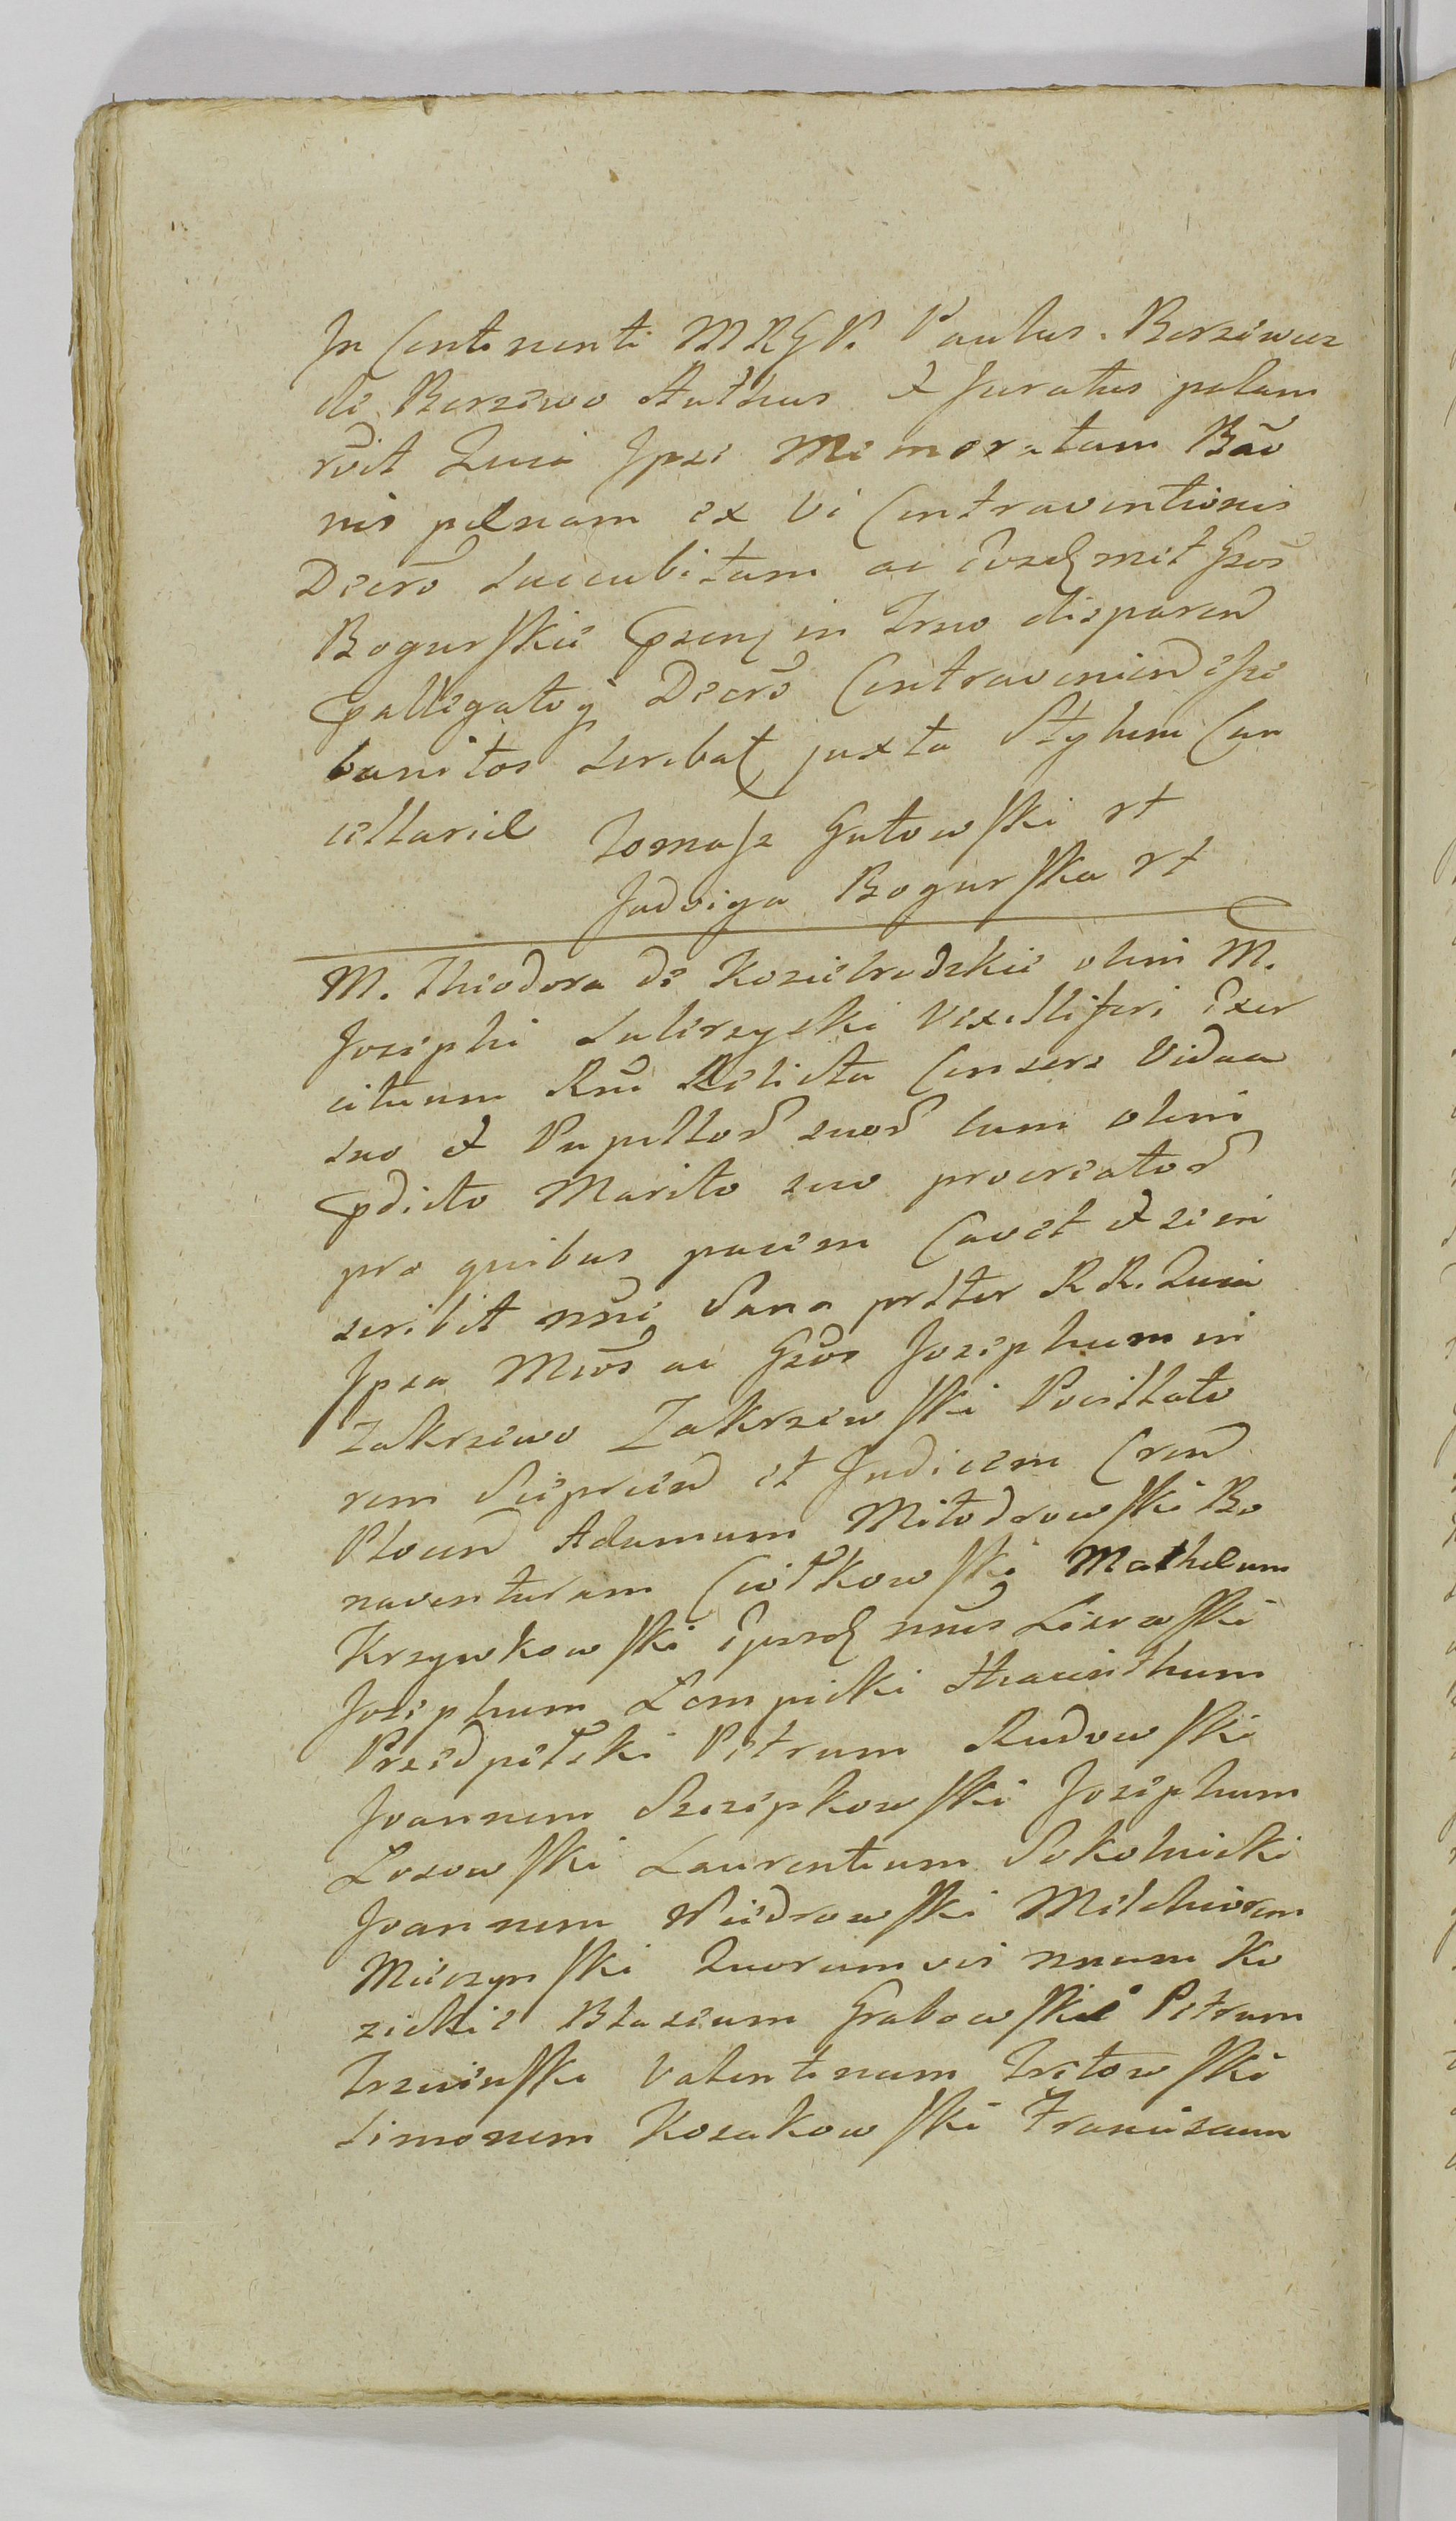 In Continenti MRGP. Paulus Berziwicz
de Berziwo Authus & Juratus palam
rvit Quia Ipse Memoratam Bão
nis pœnam ex vi Contraventionis
Decrõ succubitam ac
Bogurskie in Trno disparen
Decrõ Contravenien esse
banitos scribat juxta Stylum Can
cellariæ Tomasz Gutowski rt
Jadviga Bogurska rt
M. Theodora de Koziebrodzkie olim M.
Josephi Sulirzyski Vexilliferi Exer
cituum Rni Relicta Consors Vidua
suo & Pupillor suor cum olim
pdicto Marito suo procreator
pro quibus pariem Cavet & se in
scribit nni Sana prlter R R. Quia
Ipsa Mcos ac Gsos Josephum in
Zakrzewo Zakrzewski Pocillato
rem et Judicem Cren
Plocen Adamum Mitodrowski Bo
naventuram Ciotkowski Mathæum
Krzywkowski nnis
Josephum Lempicki Hiacinthum
Przedpełski Petrum Rudowski
Joannem Szczepkowski Josephum
Losowski Laurentium Sokolnicki
Joannem Wiedrowski Melchiorem
Mieczynski Quorumvis nnum Ko
zickie Blasium Grabowskie Petrum
Trzcinski Valentinum Tretowski
Simonem Kosakowski Franciscum